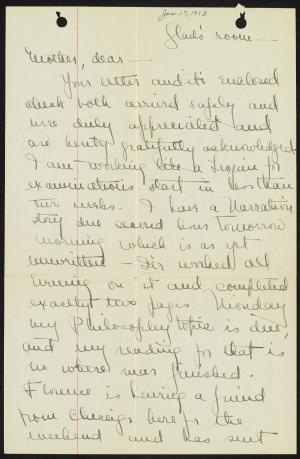 Jan. 17, 1913
Glad's room —
Mother, dear —
Your letter and its enclosed
check both arrived safely and
were duly appreciated and
are hereby gratefully acknowledged.
I am working like a Trojan for
examinations start in less than
two weeks. I have a Narration
story due second hour tomorrow
morning which is as yet
unwritten — I've worked all
evening on it and completed
exactly two pages. Monday
my Philosophy topic is due,
and my reading for that is
no where near finished.
Florence is having a friend
from Chicago here for the
weekend and has sent